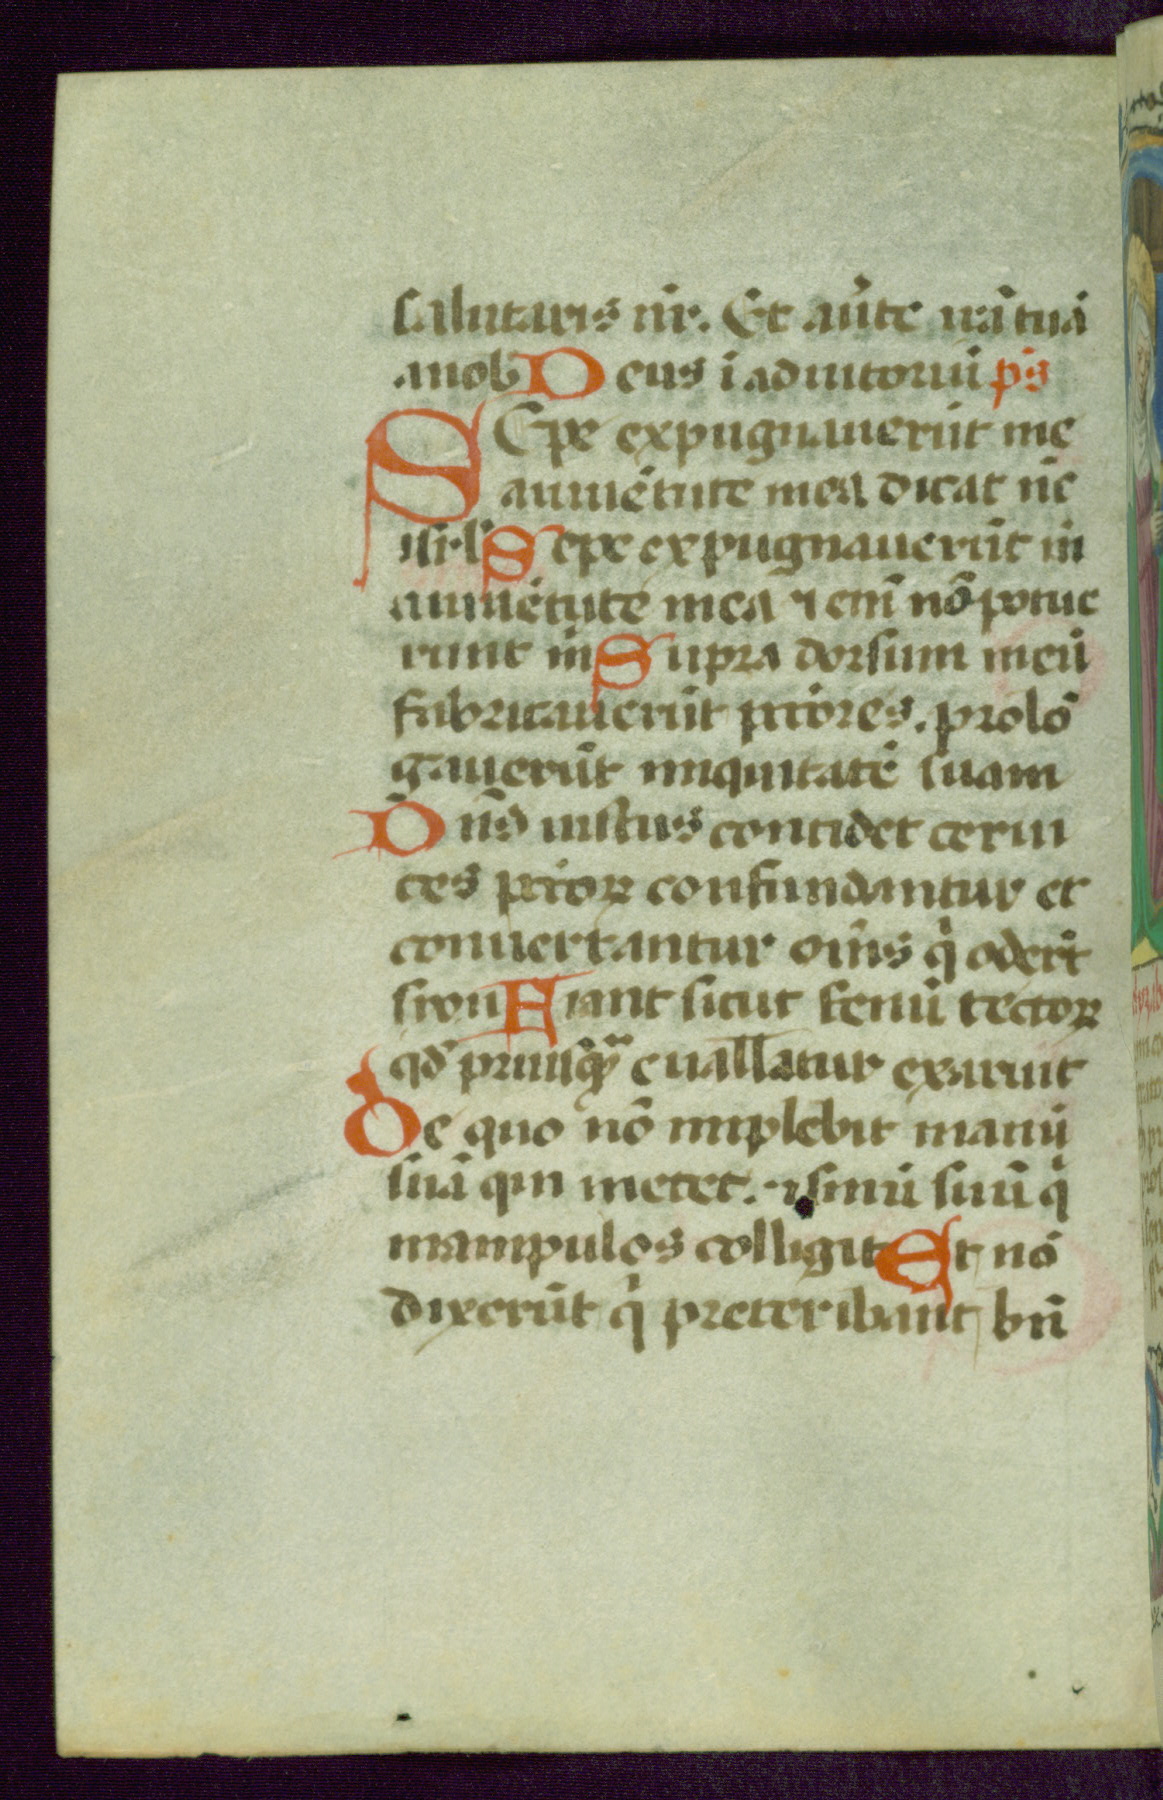 salutaris nr̄. Et au̇te irā tuā
a nob Deus ī adiutoriū ps̄
SEpe expugnauerūt me
a iuuētute mea dicat nc̄
isrl̄ Sepe expugnauerūt m̄
a iuuētute mea ⁊ em̄ nō potue
runt m̄ Supra dorsum meū
fabricauerūt pctōres. prolō
gauerūt iniquitatē suam
Dn̄s iustus concidet cerui
ces pctōꝝ confundantur et
conuertantur om̄s qͥ oderūt
sion Fiant sicut fenū tectoꝝ
qd̄ priusqꝫ euallatur exaruit
De quo nō implebit manū
suā qui metet. ⁊ sinū suū qͥ
manipulos colligit Et nō
dixerūt qͥ preteribant bn̄